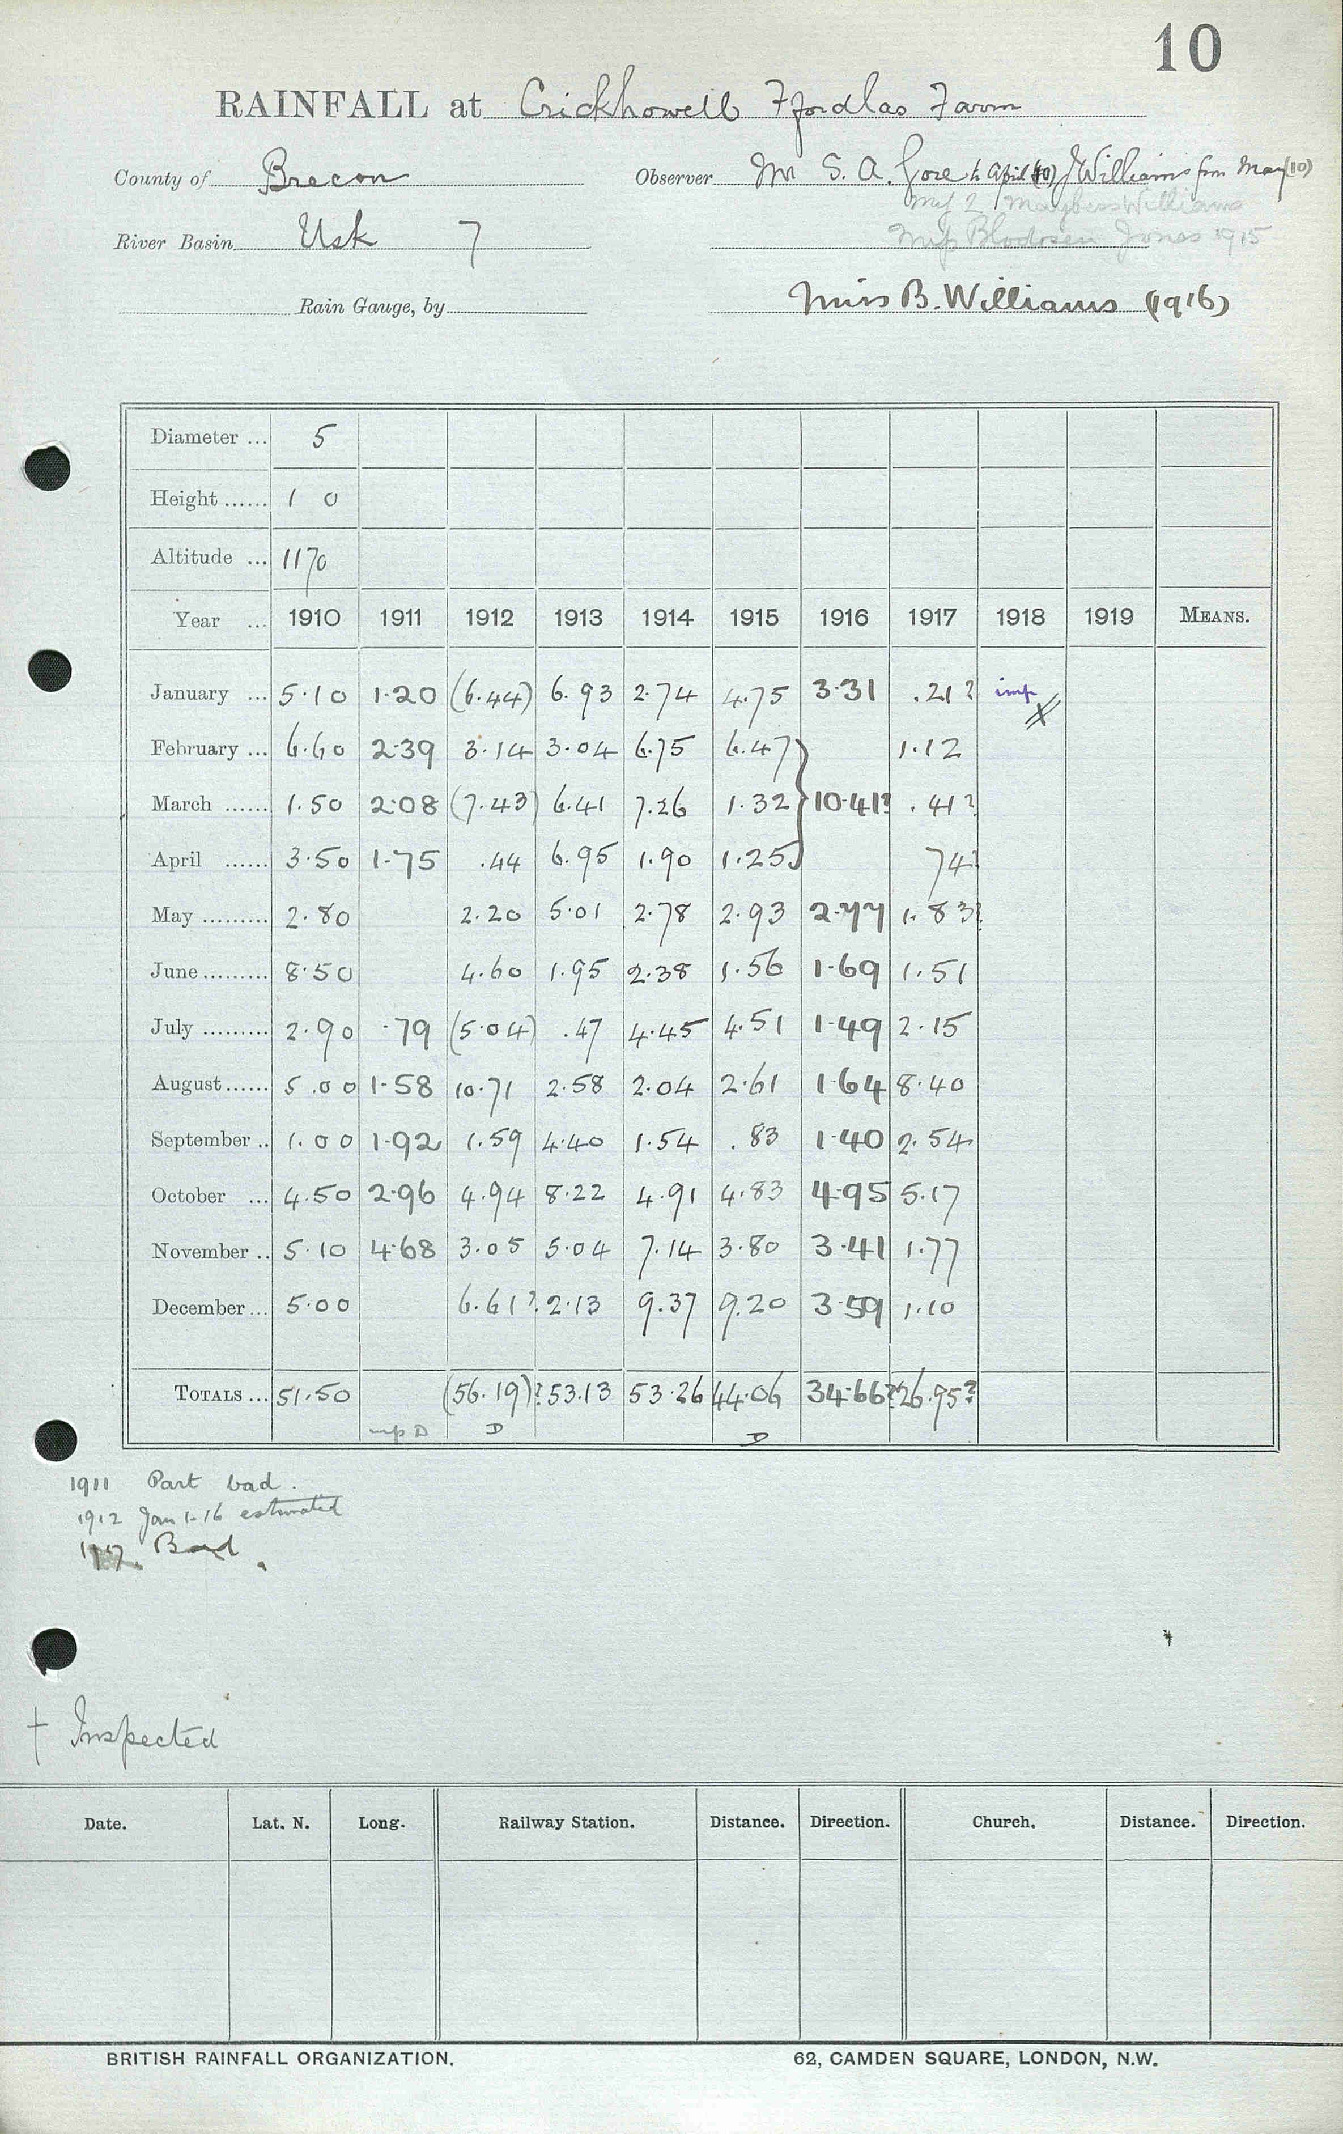 10
RAINFALL at Crickhowell Ffordlas Farm
County of Brecon Observer Mr S. A. Gore to April (10) J Williams from May (10)
Williams
River Basin Usk 7 Miss Jones 1915
Rain Gauge, by Miss B. Williams (1916)
Diameter ... 5
Height ...... 1 0
Altitude ... 1170
Year ... 1910 1911 1912 1913 1914 1915 1916 1917 1918 1919 MEANS.
January ... 5.10 1.20 (6.44) 6.93 2.74 4.75 3.31 .21? imp
February ... 6.60 2.39 3.14 3.04 6.75 6.47 1.12
March ...... 1.50 2.08 (7.43) 6.41 7.26 1.32 } 10.41? .41?
April ...... 3.50 1.75 .44 6.95 1.90 1.25 74?
May ......... 2.80 2.20 5.01 2.78 2.93 2.77 1.83?
June ......... 8.50 4.60 1.95 2.38 1.56 1.69 1.51
July ......... 2.90 .79 (5.04) .47 4.45 4.51 1.49 2.15
August ...... 5.00 1.58 10.71 2.58 2.04 2.61 1.64 8.40
September .. 1.00 1.92 1.59 4.40 1.54 .83 1.40 2.54
October ... 4.50 2.96 4.94 8.22 4.91 4.83 4.95 5.17
November .. 5.10 4.68 3.05 5.04 7.14 3.80 3.41 1.77
December ... 5.00 6.61? 2.13 9.37 9.20 3.59 1.10
TOTALS ... 51.50 (56.19)? 53.13 53.26 44.06 34.66? 26.95?
D D D
1911 Part bad.
1912 Jan 1-16 estimated
1917. Bad.
† Inspected
Date. Lat. N. Long. Railway Station. Distance. Direction. Church. Distance. Direction.
BRITISH RAINFALL ORGANIZATION. 62, CAMDEN SQUARE, LONDON, N.W.